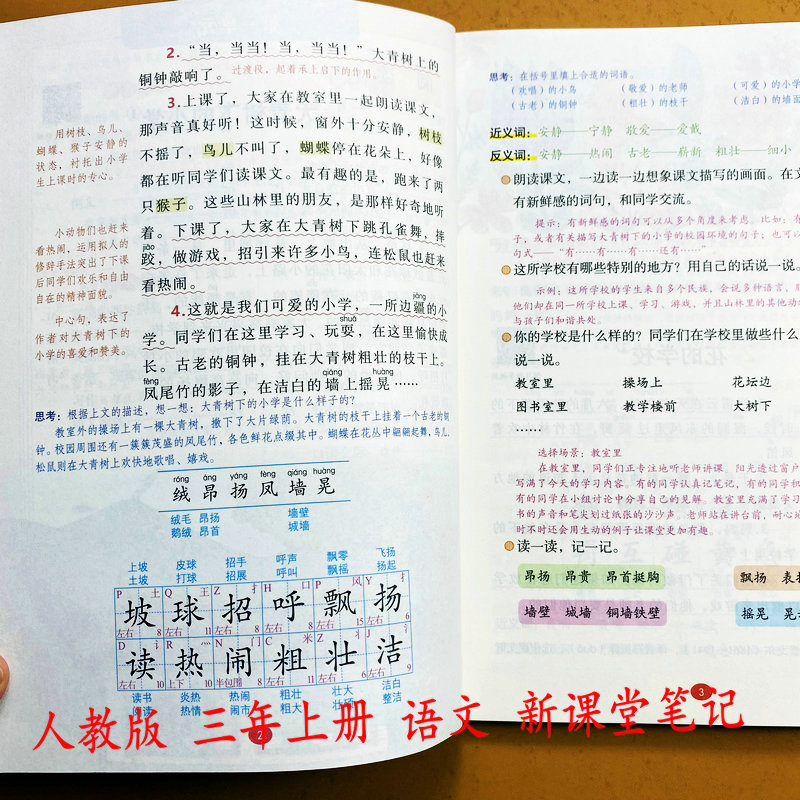 2. “当，当当！当，当当！”大青树上的
铜钟敲响了。 过渡段，起着承上启下的作用。
3.上课了，大家在教室里一起朗读课文，
那声音真好听！这时候，窗外十分安静，树枝
不摇了，鸟儿不叫了，蝴蝶停在花朵上，好像
都在听同学们读课文。最有趣的是，跑来了两
只猴子。这些山林里的朋友，是那样好奇地听
着。下课了，大家在大青树下跳孔雀舞，摔
jiāo
跤，做游戏，招引来许多小鸟，连松鼠也赶来
看热闹。
4.这就是我们可爱的小学，一所边疆的小
jiāng
学。同学们在这里学习、玩耍，在这里愉快成
shuǎ
长。古老的铜钟，挂在大青树粗壮的枝干上。
fèng qiáng huàng
凤尾竹的影子，在洁白的墙上摇晃……
用树枝、鸟儿、
蝴蝶、猴子安静的
状态，衬托出小学
生上课时的专心。
小动物们也赶来
看热闹，运用拟人的
修辞手法突出了下课
后同学们欢乐和自由
自在的精神面貌。
中心句，表达了
作者对大青树下的
小学的喜爱和赞美。
思考：根据上文的描述，想一想：大青树下的小学是什么样子的？
教室外的操场上有一棵大青树，撒下了大片绿荫。大青树的枝干上挂着一个古老的铜
钟。校园周围还有一簇簇茂盛的凤尾竹，各色鲜花点缀其中。蝴蝶在花丛中翩翩起舞，鸟儿、
松鼠则在大青树上欢快地歌唱、嬉戏。
róng áng yáng fèng qiáng huàng
绒 昂 扬 凤 墙 晃
绒毛 昂扬 墙壁
鹅绒 昂首 城墙
上坡 皮球 招手 呼声 飘零 飞扬
土坡 打球 招展 呼叫 飘摇 扬起
坡 球 招 呼 飘 扬
读 热 闹 粗 壮 洁
读书 炎热 热闹 粗壮 壮大 洁白
阅读 热情 闹市 粗大 壮硕 整洁
2
思考：在括号里填上合适的词语。
（欢唱）的小鸟 （敬爱）的老师 （可爱）的小学
（古老）的铜钟 （粗壮）的枝干 （洁白）的墙面
近义词：安静——宁静 敬爱——爱戴
反义词：安静——热闹 古老——崭新 粗壮——细小
朗读课文，一边读一边想象课文描写的画面。在文
有新鲜感的词句，和同学交流。
提示：有新鲜感的词句可以从多个角度来考虑。比如：有
子，或者有关描写大青树下的小学的校园环境的句子；也可以
句式——“有……有……有……还有……”
这所学校有哪些特别的地方？用自己的话说一说。
示例：这所学校的学生来自多个民族，会说多种语言，服
他们却在同一所学校上课、学习、游戏，并且山林里的其他动
与孩子们和谐共处。
你的学校是什么样的？同学们在学校里做些什么
说一说。
教室里 操场上 花坛边
图书室里 教学楼前 大树下
……
选择场景：教室里
在教室里，同学们正专注地听老师讲课。阳光透过窗户
写满了今天的学习内容。有的同学认真记笔记，有的同学积
有的同学在小组讨论中分享自己的见解。教室里充满了学习
书的声音和笔尖划过纸张的沙沙声。老师站在讲台前，耐心地
时不时还会用生动的例子让课堂更加有趣。
读一读，记一记。
昂扬 昂贵 昂首挺胸 飘扬
墙壁 城墙 铜墙铁壁 摇晃
3
人教版 三年上册 语文 新课堂笔记